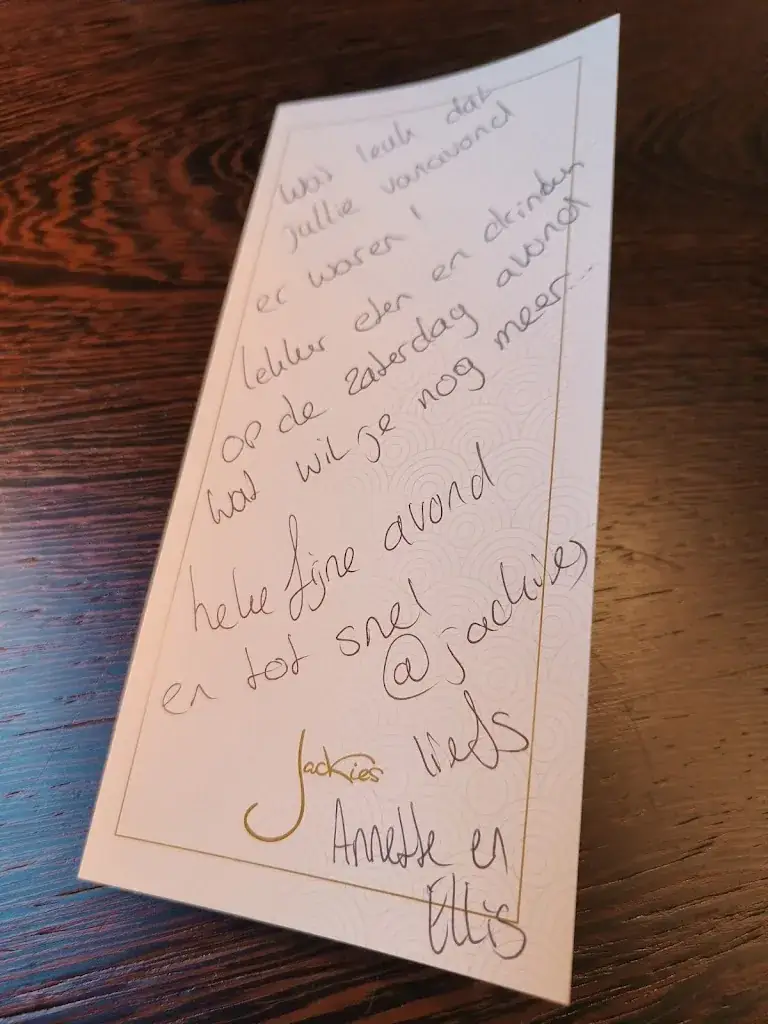 Wat leuk dat
jullie vanavond
er waren!
lekker eten en drinken
op de zaterdag avond
wat wil je nog meer...
hele fijne avond
en tot snel
@jackies
liefs
Jackies
Annette en
Ellis